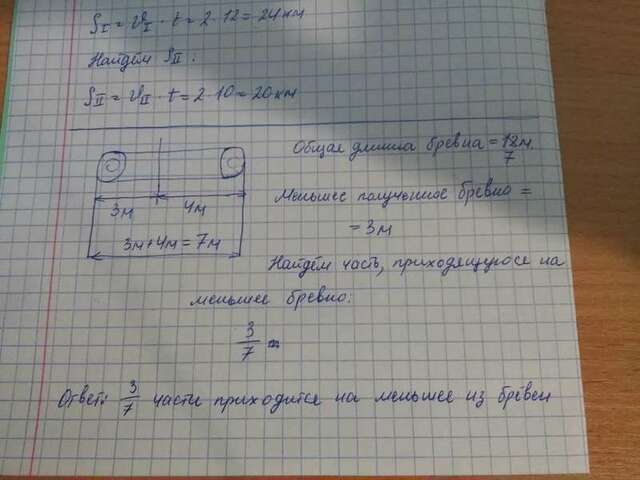 S_I = V_I · t = 2 · 12 = 24 км
Найдём S_II :
S_II = V_II · t = 2 · 10 = 20 км
Общая длинна бревна = 12м.
7
3м 4м
3м+4м = 7м
Меньшее полученное бревно =
= 3м
Найдём часть, приходящуюся на
меньшее бревно:
3/7
Ответ: 3/7 части приходится на меньшее из брёвен